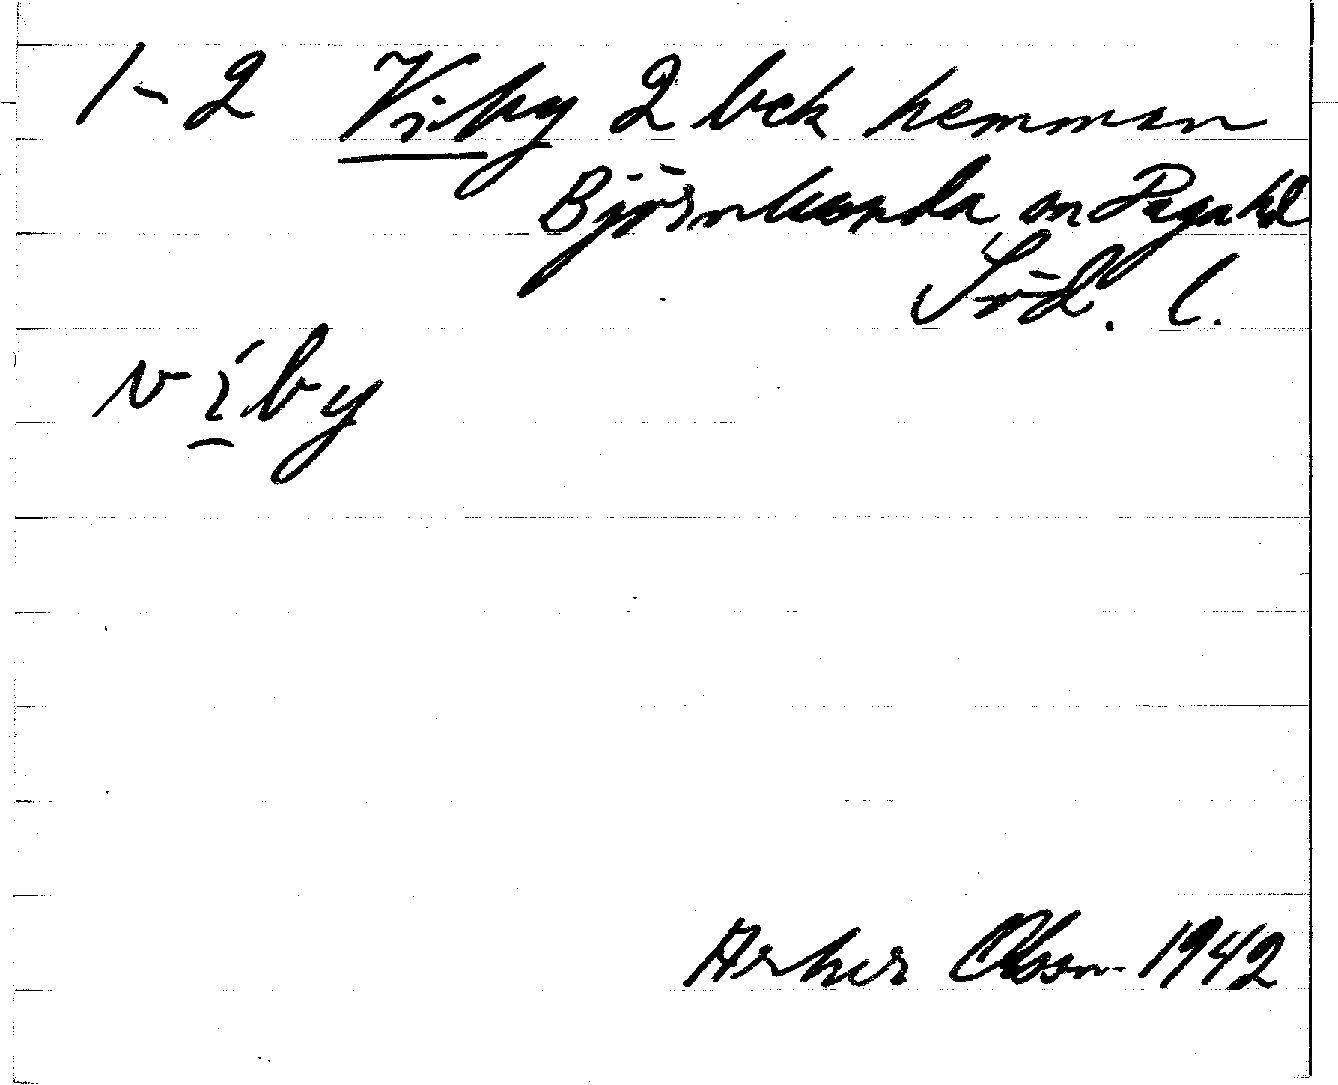 1-2 Viby 2 bck hemman
Björnlunda sn Daga hd
Söd. l.
víby
Arthur Olsson 1942